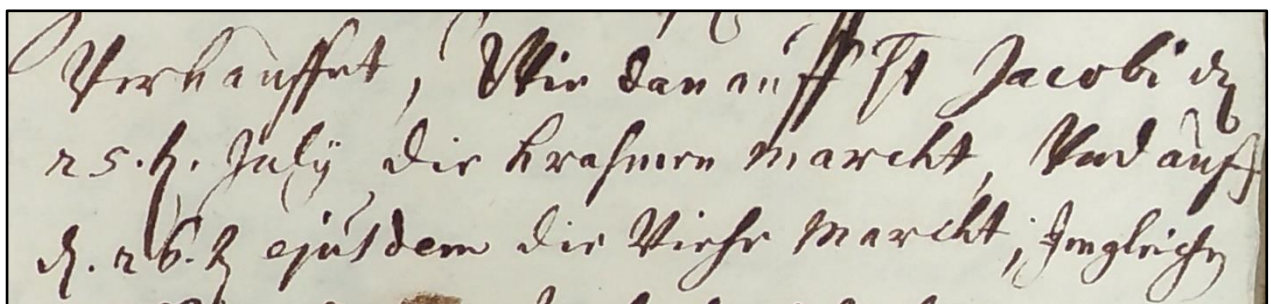 Verkauffet, Wie dan auff St Jacobi dẽ
25.t. July die krahmer marckt, Und auf
d. 26.t ejusdem die Viehe Marckt, Imgleichẽ